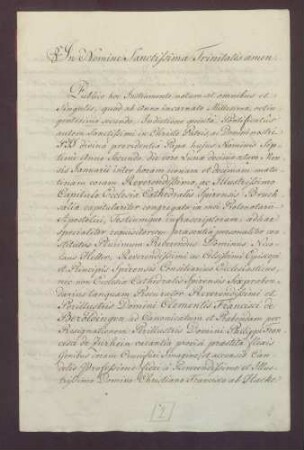 In Nomine Sanctissimæ Trinitatis amen
Publico hoc Instrumento notum sit omnibus et
Singulis, quod ab Anno incarnato Millesimo, octin
gentesimo secundo, Indictione quinta, Pontificatus
autem Sanctissimi in Christo Patris, ac Domini nostri
Pii divina providentia Papæ hujus Nominis Sep
timi Anno Secundo, die vero
sis Januarii inter horam nonam et decimam matu
tinam coram Reverendissimo, ac Illustrissimo
Capitulo Ecclesiæ Cathedralis Spirensis Bruch
saliæ capitulariter congregato in mei Protonotarii
Apostolici, Testiumque infrascriptorum, ad hoc
specialiter requisitorum præsentia personaliter con
stitutus Plurimum Reverendus Dominus Nico
laus Reverendissimi ac Celsissimi Episcopi
et Principis Spirensis Consiliarius Ecclesiasticus,
nec non Ecclesiæ Cathedralis Spirensis
darius tanquam Procurator Reverendissimi et
Perillustris Domini Francisci de
Beroldingen ad Canonicatum et Præbendam per
Resignationem Perillustris Domini Philippi Fran
cisci de Zurhein vacantis
fixibus coram Crucifixi Imagine, et accensis Can
delis Professione fidei a Reverendissimo et Illus
trissimo Domino Christiano Francisco ab Hacke
[2]